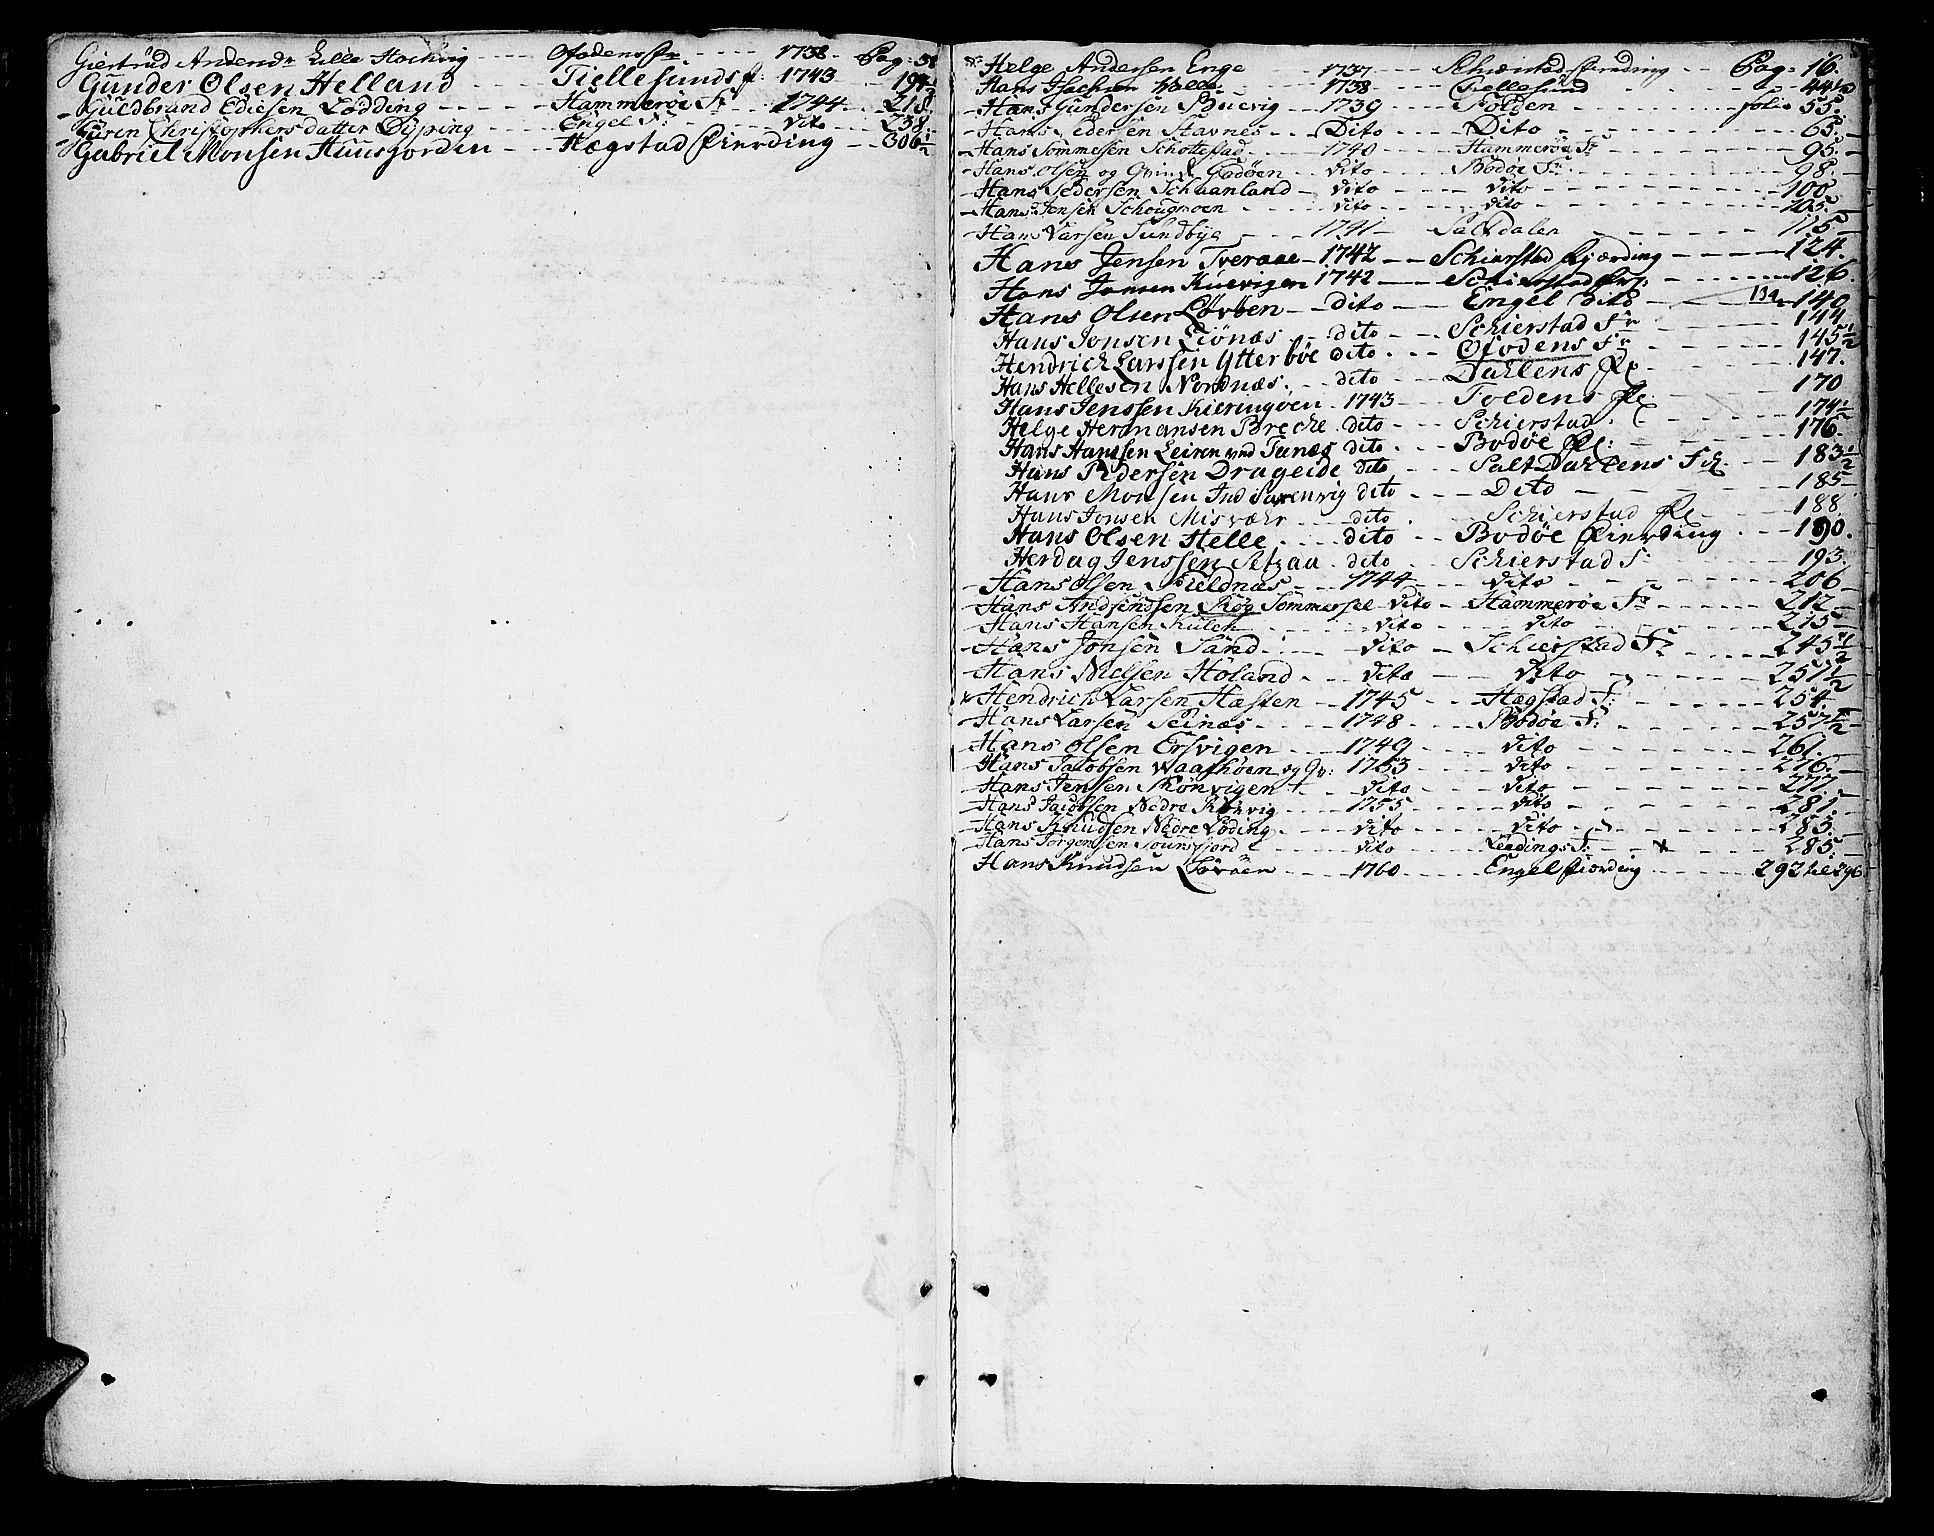 Giertrud Andersdr Lille Haekvig - - - Ofodens fr - - - - 1738 - Pag: 51
Gunder Olsen Helland - - - Tiellesunds f: 1743 - - - 197 1/2
- Guldbrand Ediesen Lødding - - - - Hammerøe Fr - - 1744 - - 218
- Giøren Christophersdatter Dyping - - - Engel Fr - - - dito - - - 238
- Gabriel Monsen Huusjorden - - Hægstad Fierding - - 306 1/2
Helge Andersen Enge - - 1737 - - - Schierstad fierding - - Pag: 16
- Hans Isachsen - - - 1738 - - - Tiellesund - - - 44 1/2
- Hans Gundersen - - 1739 - - - Folden - - - folio 55
- Hans Pedersen Stavnes - - - Dito - - - Dito - - - 65
- Hans Sommesen Schottestad - - - 1740 - - - Hammerøe Fr - - - 95
- Hans Olsen og Qvinde Godøen - - dito - - - Bodøe Fr - - - 98
- Hans Pedersen Schaanland - dito - - - dito - - - 100
- Hans Jensen Schougmoen - - - dito - - - dito - - - 105
- Hans Larsen Sundbye - - - 1741 - - Saltdalen - - - 115
Hans Jensen Tveraae - 1742 - - Schierstad Fjærding - - - 124
Hans Jonsen Kuevigen 1742 - - - Schierstad Frf: - - - 126
Hans Olsen Løvøen - - dito - - - Engel dito - - - 139 140
Hans Jonsen Liønæs - - dito - - - Schierstad Fr - - - 144
Hendrich Larssen Ytterbøe dito - - - Ofodens Fr - - - 145 1/2
Hans Hellesen Nordnæs - - dito - - - Dahlens fl - - - 147
Hans Jenssen Kieringøen - 1743 - - - Foldens fl - - - 170
Helge Hermansen Breche dito - - - Schierstad - - - 174 1/2
Hans Hanssen Leiren und Tunæs dito - - - Bodøe fl: - - - 176
Hans Pedersen Drageide dito - - - SaltDahlens Fr - - - 183 1/2
Hans Monsen Ind dito - - - Dito - - - 185
Hans Jonsen Misvæhr - - - dito - - - Schierstad fl - - - 188
Hans Olsen Helle - - - dito - - - Bodøe Fierding - - - 190
Herdag Jenssen Setzaa - dito - - - Schierstad F: - - - 193
- Hans Olsen Fieldnæs - - - 1744 - - - dito - - - 206
- Hans Andsendsen Skøg Sommersel - dito - - Hammerøe Fr - - - 212
- Hans Hansen - - - dito - - - dito - - - 215
- Hans Jonsen Sand - - - dito - Schierstad Fr - - - 245 1/2
- Hans Nielsen Høland - - - dito - - - dito - - - 251 1/2
- Hendrich Larsen Hæsten - 1745 - - - Hægstad F: - - - 254
- Hans Larsen Seinæs - - - 1748 - - - Bodøe F: - - - 257 1/2
- Hans Olsen Ersvigen - - - 1749 - - - dito - - - 261
- Hans Jacobsen Waagøen og Qv: 1753 - - - dito - - - 276
- Hans Jensen Kønvigen + - dito - - - dito - - - 277
- Hans Jacobsen Nedre - - - 1755 - - - dito - - - 281
- Hans Knudsen Nedre Løding - - - dito - - - dito - - - 283
- Hans Jørgensen - - - dito - - - Lødings F: - - - 285
Hans Knudsen Løvøen - - - 1760 - - - Engel fiording - - - 292 til 296